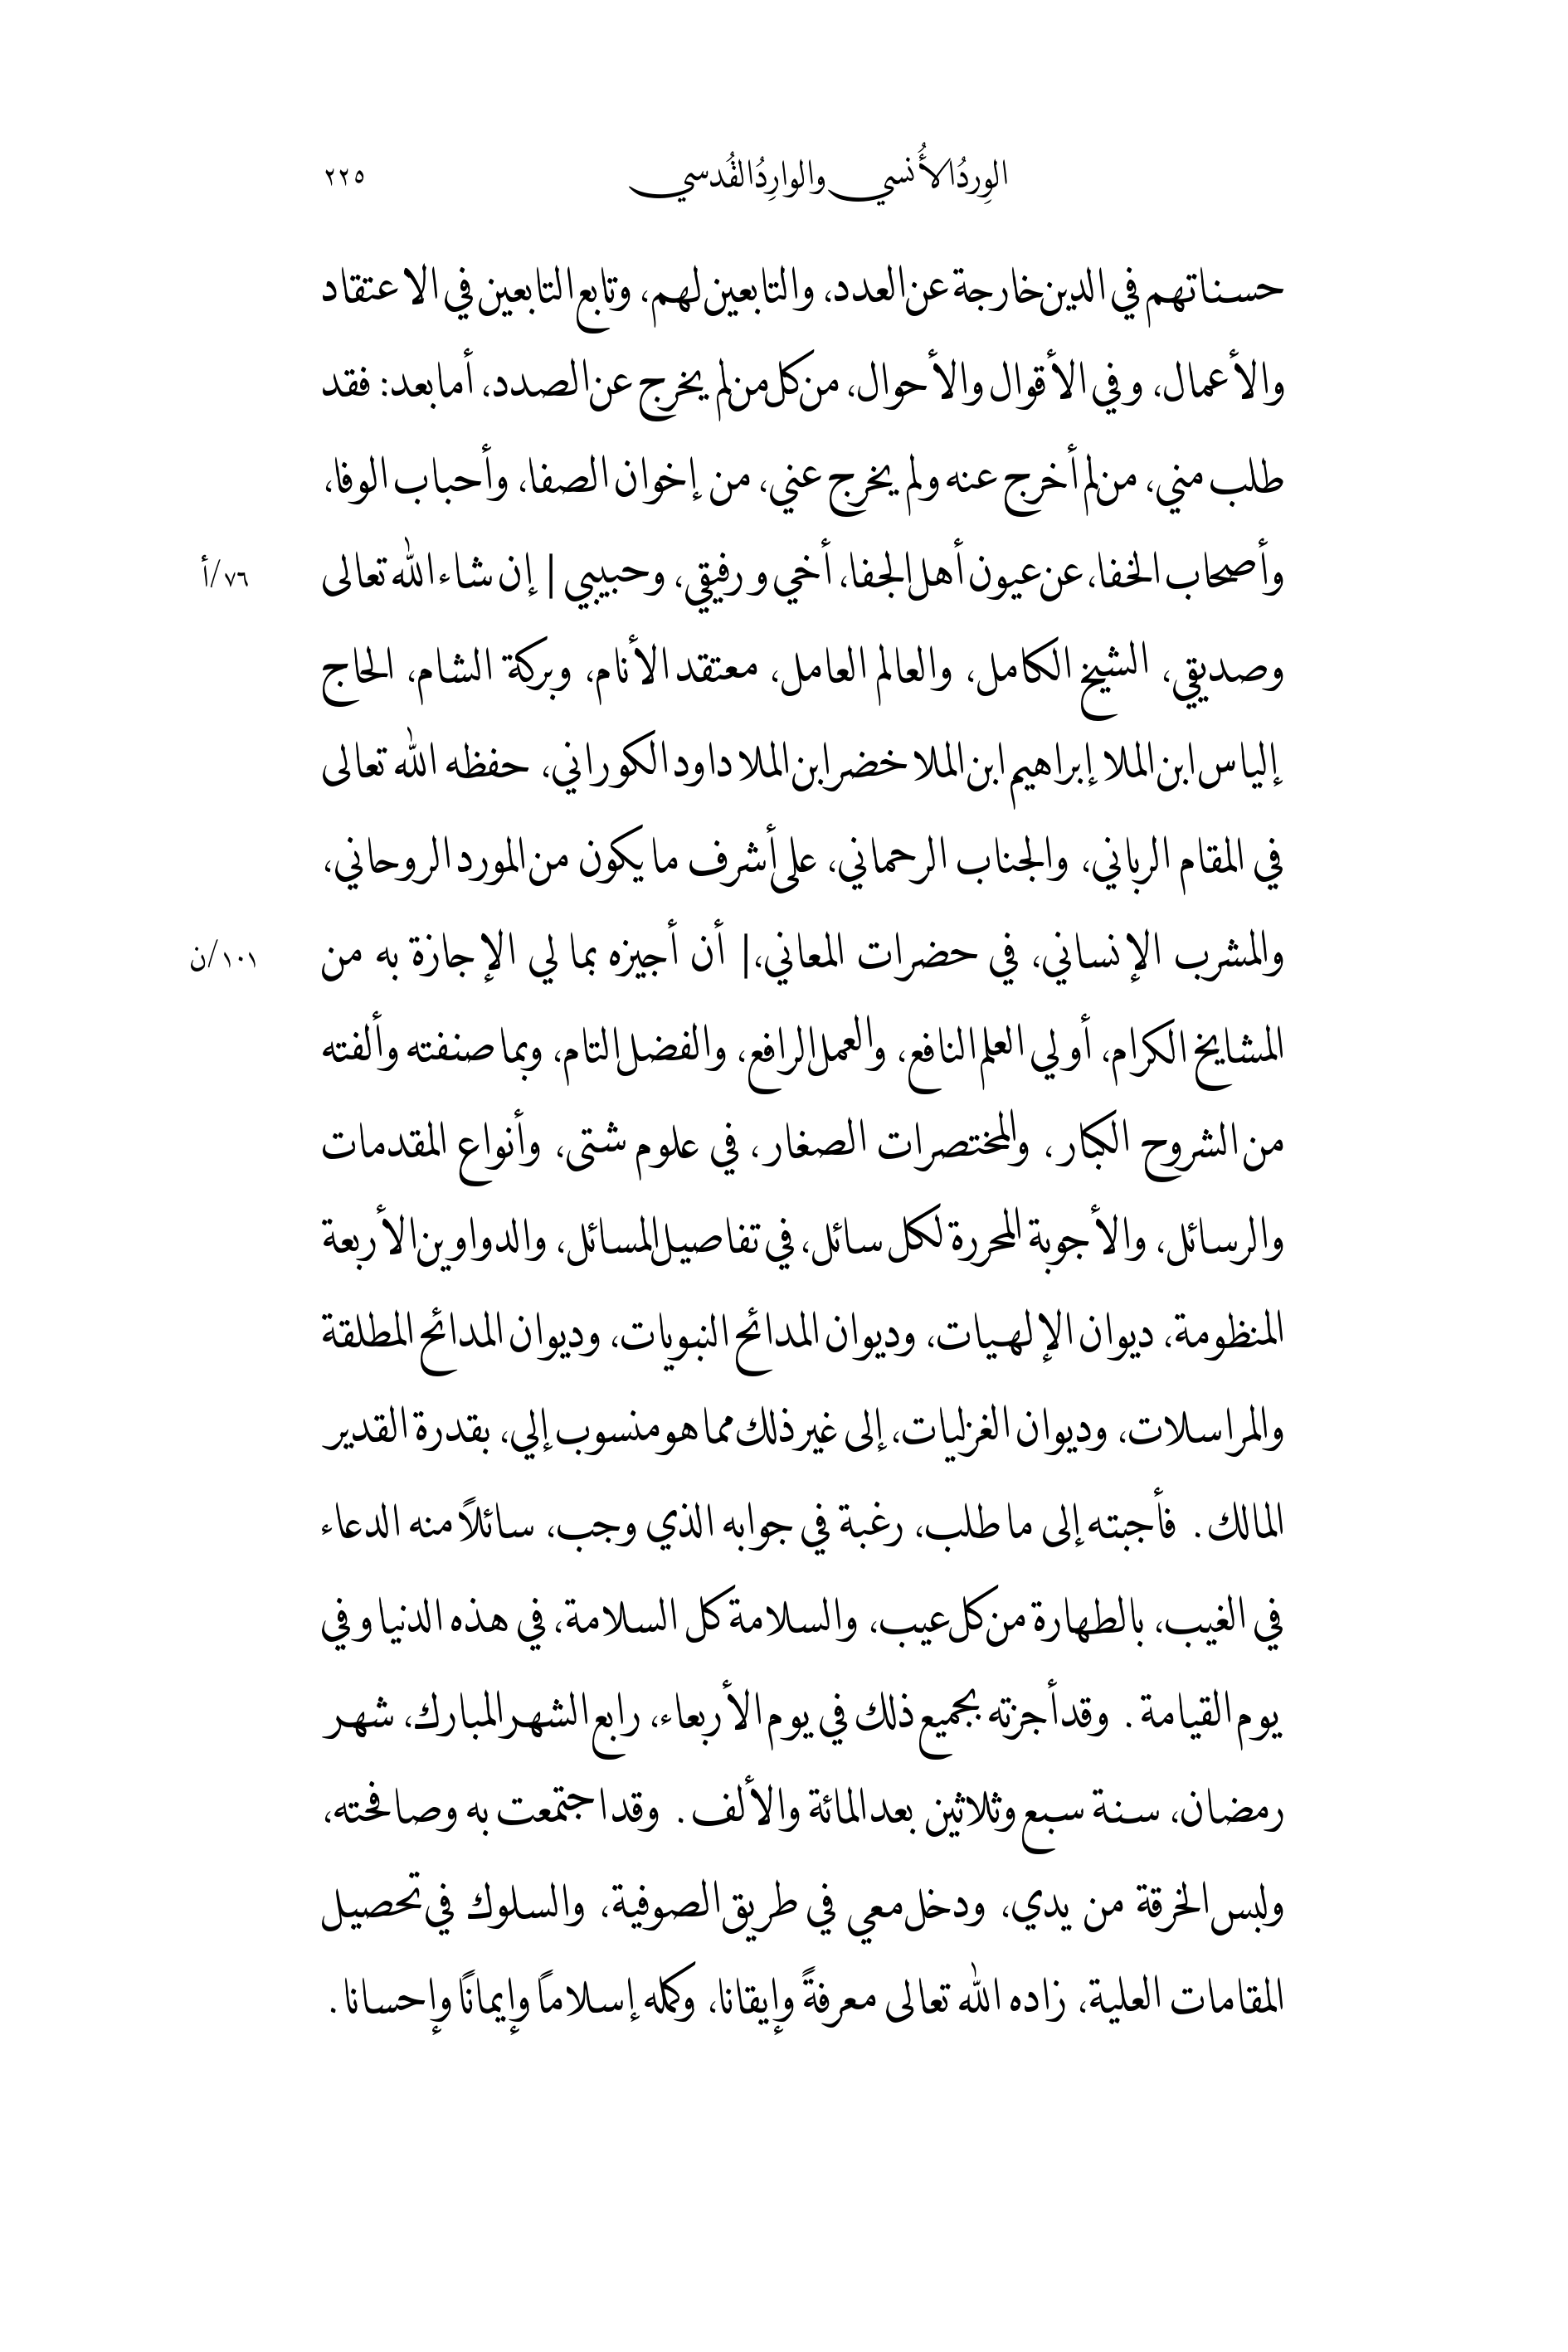 الوِردُ الأُنسي والوارِدُ القُدسي ٢٢٥
حسناتهم في الدين خارجة عن العدد، والتابعين لهم، وتابع التابعين في الاعتقاد
والأعمال، وفي الأقوال والأحوال، من كل من لم يخرج عن الصدد، أما بعد: فقد
طلب مني، من لم أخرج عنه ولم يخرج عني، من إخوان الصفا، وأحباب الوفا،
وأصحاب الخفا، عن عيون أهل الجفا، أخي ورفيقي، وحبيبي | إن شاء الله تعالى ٧٦/أ
وصديقي، الشيخ الكامل، والعالم العامل، معتقد الأنام، وبركة الشام، الحاج
إلياس ابن الملا إبراهيم ابن الملا خضر ابن الملا داود الكوراني، حفظه الله تعالى
في المقام الرباني، والجناب الرحماني، على أشرف ما يكون من المورد الروحاني،
والمشرب الإنساني، في حضرات المعاني،| أن أجيزه بما لي الإجازة به من ١٠١/ن
المشايخ الكرام، أولي العلم النافع، والعمل الرافع، والفضل التام، وبما صنفته وألفته
من الشروح الكبار، والمختصرات الصغار، في علوم شتى، وأنواع المقدمات
والرسائل، والأجوبة المحررة لكل سائل، في تفاصيل المسائل، والدواوين الأربعة
المنظومة، ديوان الإلهيات، وديوان المدائح النبويات، وديوان المدائح المطلقة
والمراسلات، وديوان الغزليات، إلى غير ذلك مما هو منسوب إلي، بقدرة القدير
المالك. فأجبته إلى ما طلب، رغبة في جوابه الذي وجب، سائلاً منه الدعاء
في الغيب، بالطهارة من كل عيب، والسلامة كل السلامة، في هذه الدنيا وفي
يوم القيامة. وقد أجزته بجميع ذلك في يوم الأربعاء، رابع الشهر المبارك، شهر
رمضان، سنة سبع وثلاثين بعد المائة والألف. وقد اجتمعت به وصافحته،
ولبس الخرقة من يدي، ودخل معي في طريق الصوفية، والسلوك في تحصيل
المقامات العلية، زاده الله تعالى معرفةً وإيقانا، وكمله إسلاماً وإيمانًا وإحسانا.